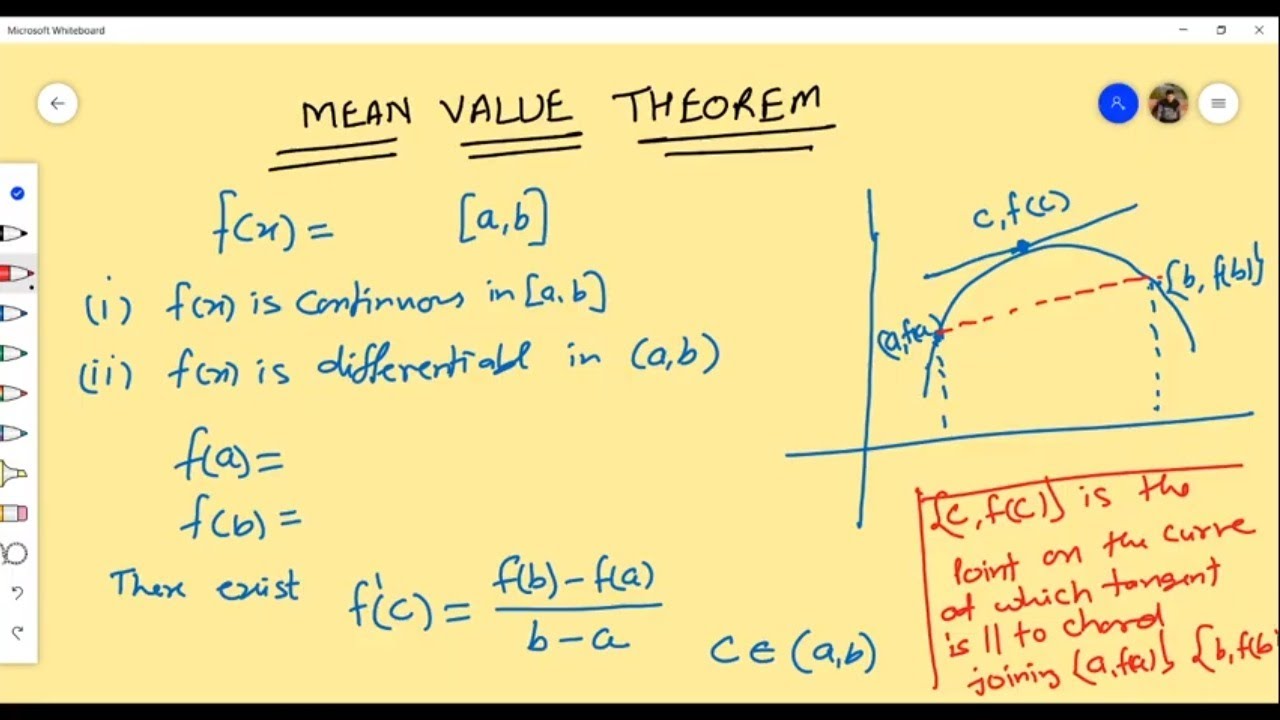 Microsoft Whiteboard
MEAN VALUE THEOREM
f(x) = [a,b]
(i) f(x) is continuous in [a,b]
(ii) f(x) is differentiabl in (a,b)
f(a) =
f(b) =
There exist f'(c) = f(b) - f(a) / b - a
c ∈ (a,b)
c, f(c)
(a, f(a)
{b, f(b)}
{c, f(c)} is the
point on the curve
at which tangent
is || to chord
joining {a, f(a)} {b, f(b